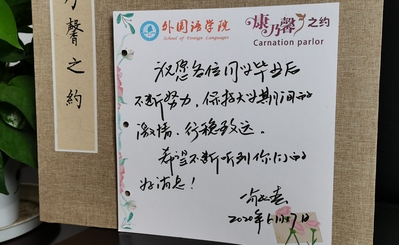 乃馨之約
外国语学院
School of Foreign Languages
康乃馨之约
Carnation parlor
祝愿各位同学毕业后
不断努力，保持大学期间的
激情，行稳致远。
希望不断听到你们的
好消息！
2020年6月